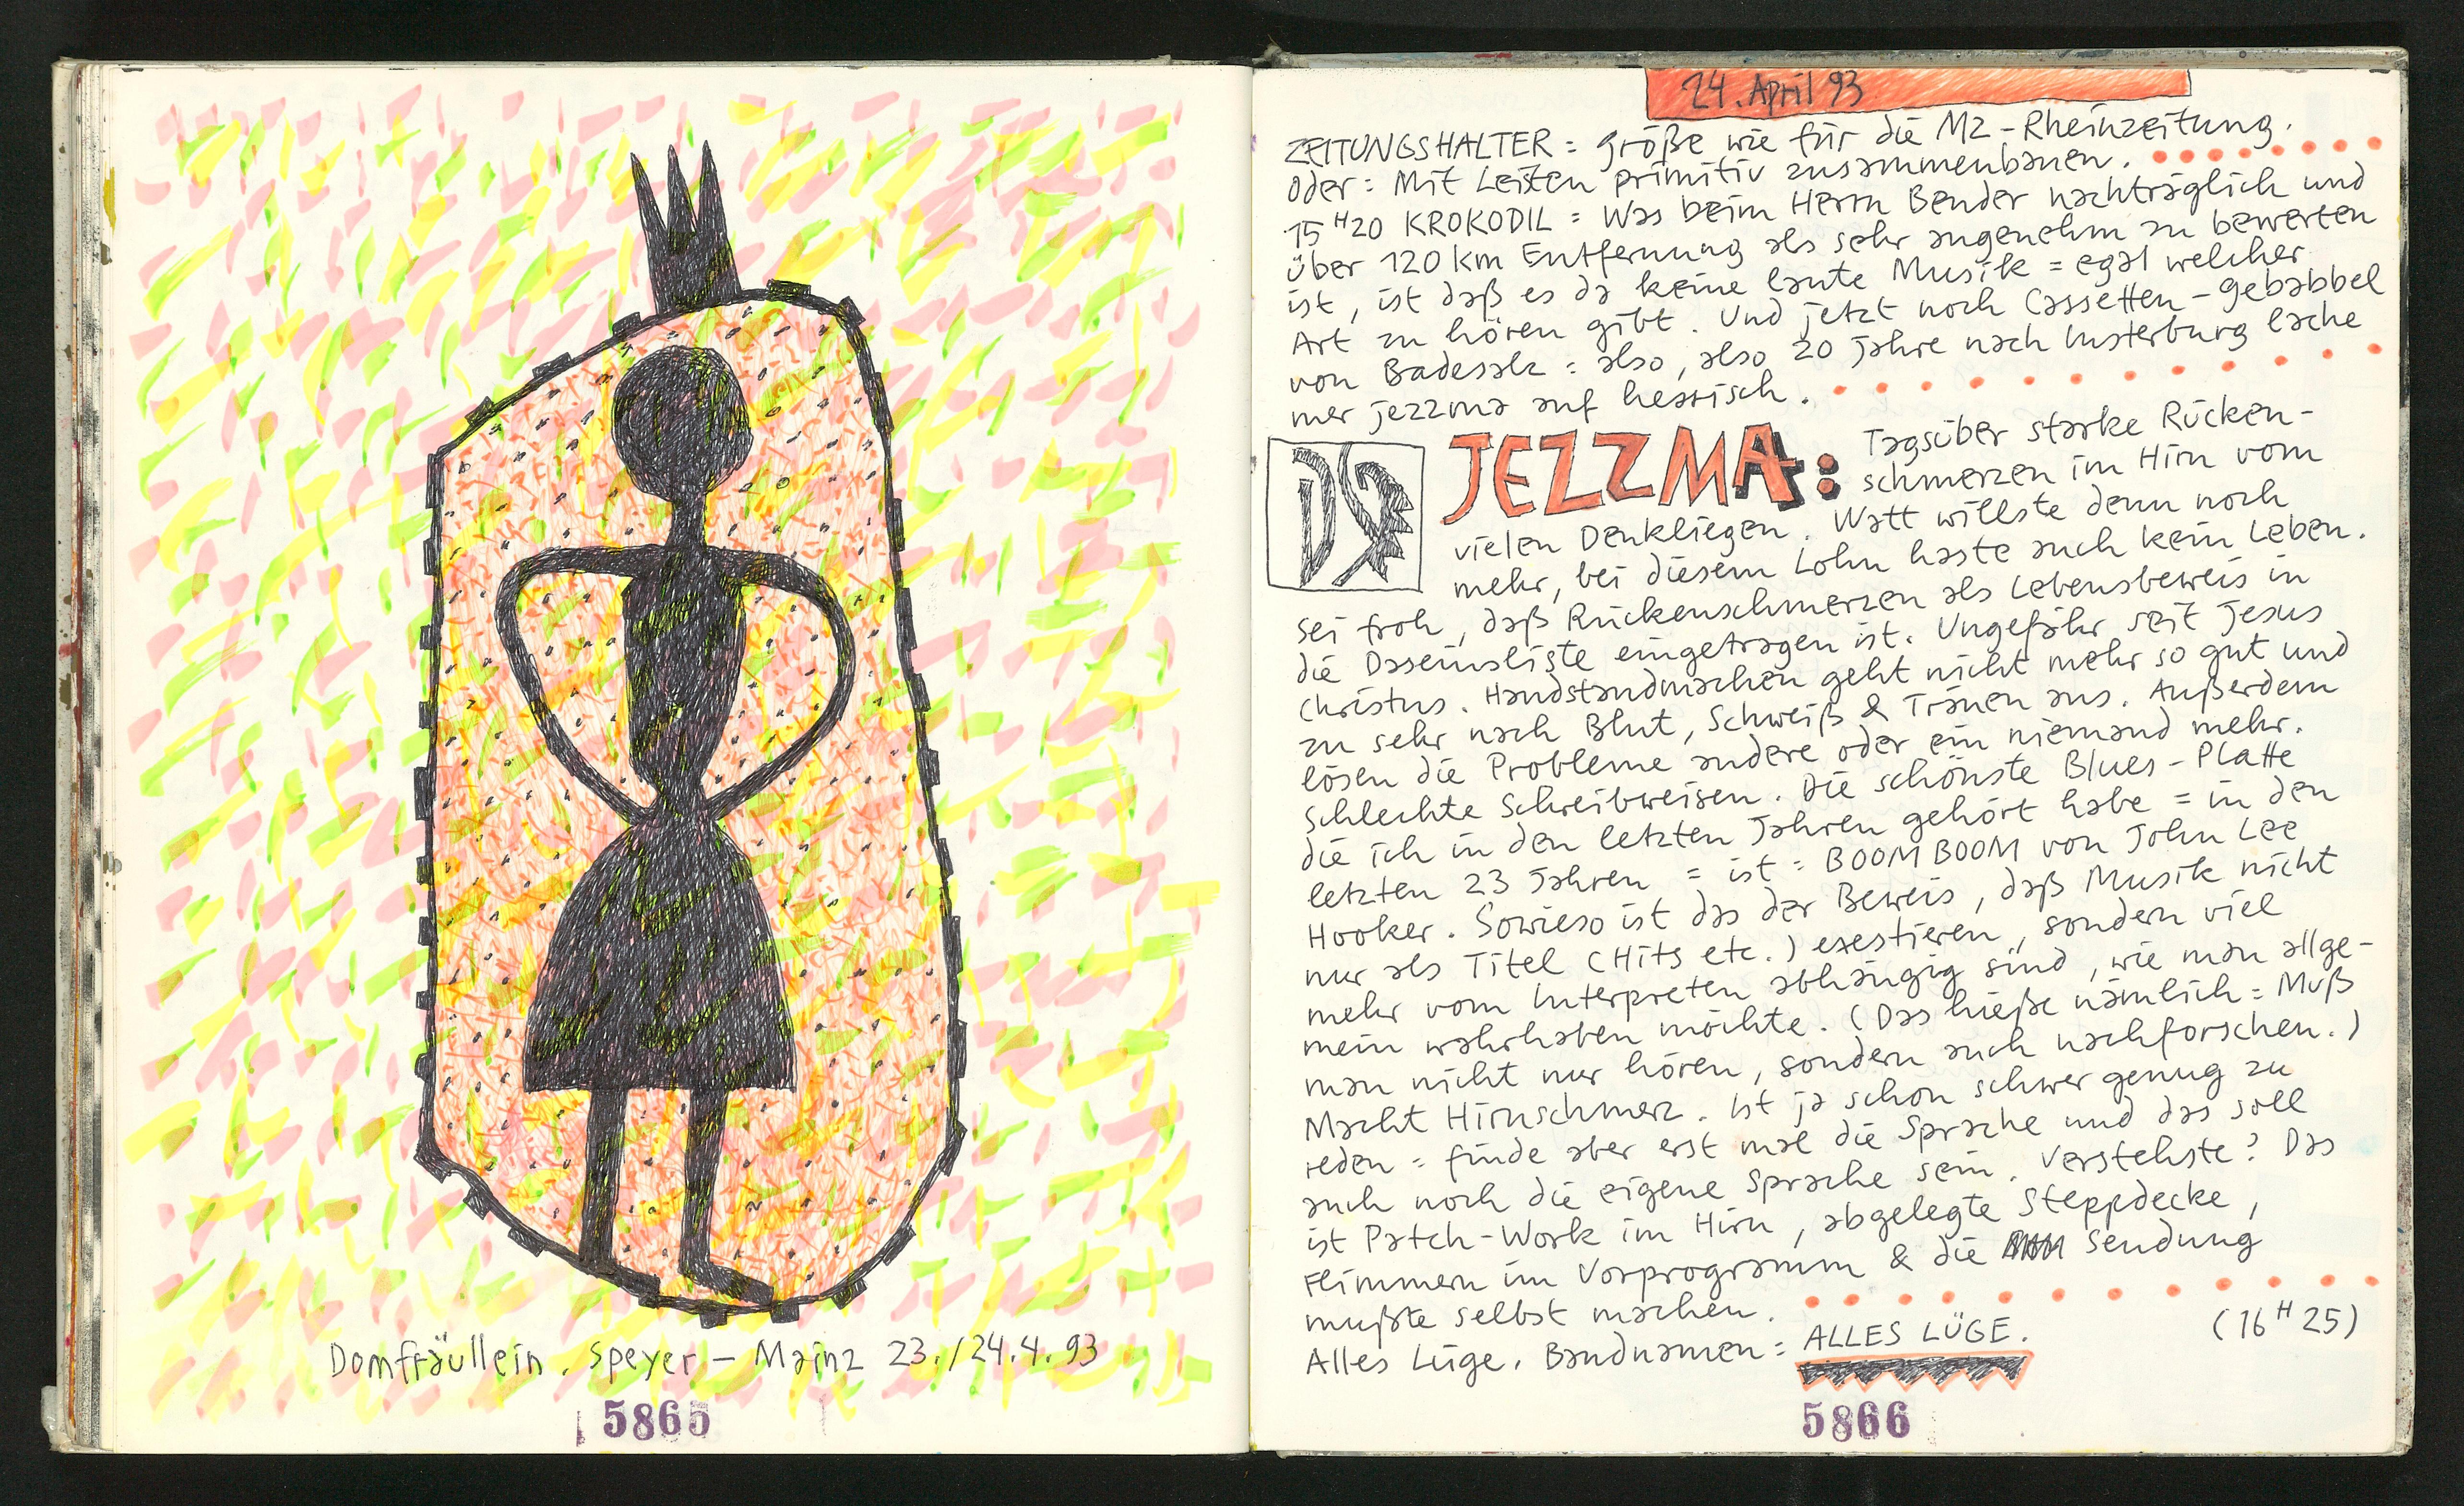 Domfräullein. Speyer – Mainz 23./24.4.93
5865
24. April 93
ZEITUNGSHALTER = größe wie für die MZ-Rheinzeitung.
Oder: Mit Leisten primitiv zusammenbauen.
15 H 20 KROKODIL = Was beim Herrn Bender nachträglich und
über 120 km Entfernung als sehr angenehm zu bewerten
ist, ist daß es da keine laute Musik = egal welcher
Art zu hören gibt. Und jetzt noch Cassetten-gebabbel
von Badesalz = also, also 20 Jahre nach Insterburg lache
mer jezzma auf hessisch.
JEZZMA: Tagsüber starke Rücken-
schmerzen im Hirn vom
vielen Denkliegen. Watt willste denn noch
mehr, bei diesem Lohn haste auch kein Leben.
Sei froh, daß Rückenschmerzen als Lebensbeweis in
die Daseinsliste eingetragen ist. Ungefähr seit Jesus
Christus. Handstandmachen geht nicht mehr so gut und
zu sehr nach Blut, Schweiß & Tränen aus. Außerdem
lösen die Probleme andere oder ein niemand mehr.
Schlechte Schreibweisen. Die schönste Blues-Platte
die ich in den letzten Jahren gehört habe = in den
letzten 23 Jahren = ist = BOOM BOOM von John Lee
Hooker. Sowieso ist das der Beweis, daß Musik nicht
nur als Titel (Hits etc.) exestieren, sondern viel
mehr vom Interpreten abhängig sind, wie man allge-
mein wahrhaben möchte. (Das hieße nämlich = Muß
man nicht nur hören, sondern auch nachforschen.)
Macht Hirnschmerz. Ist ja schon schwer genug zu
reden = finde aber erst mal die Sprache und das soll
auch noch die eigene Sprache sein. Verstehste? Das
ist Patch-Work im Hirn, abgelegte Steppdecke,
Flimmern im Vorprogramm & die Sendung
mußte selbst machen.
Alles Lüge. Bandnamen = ALLES LÜGE. (16 H 25)
5866